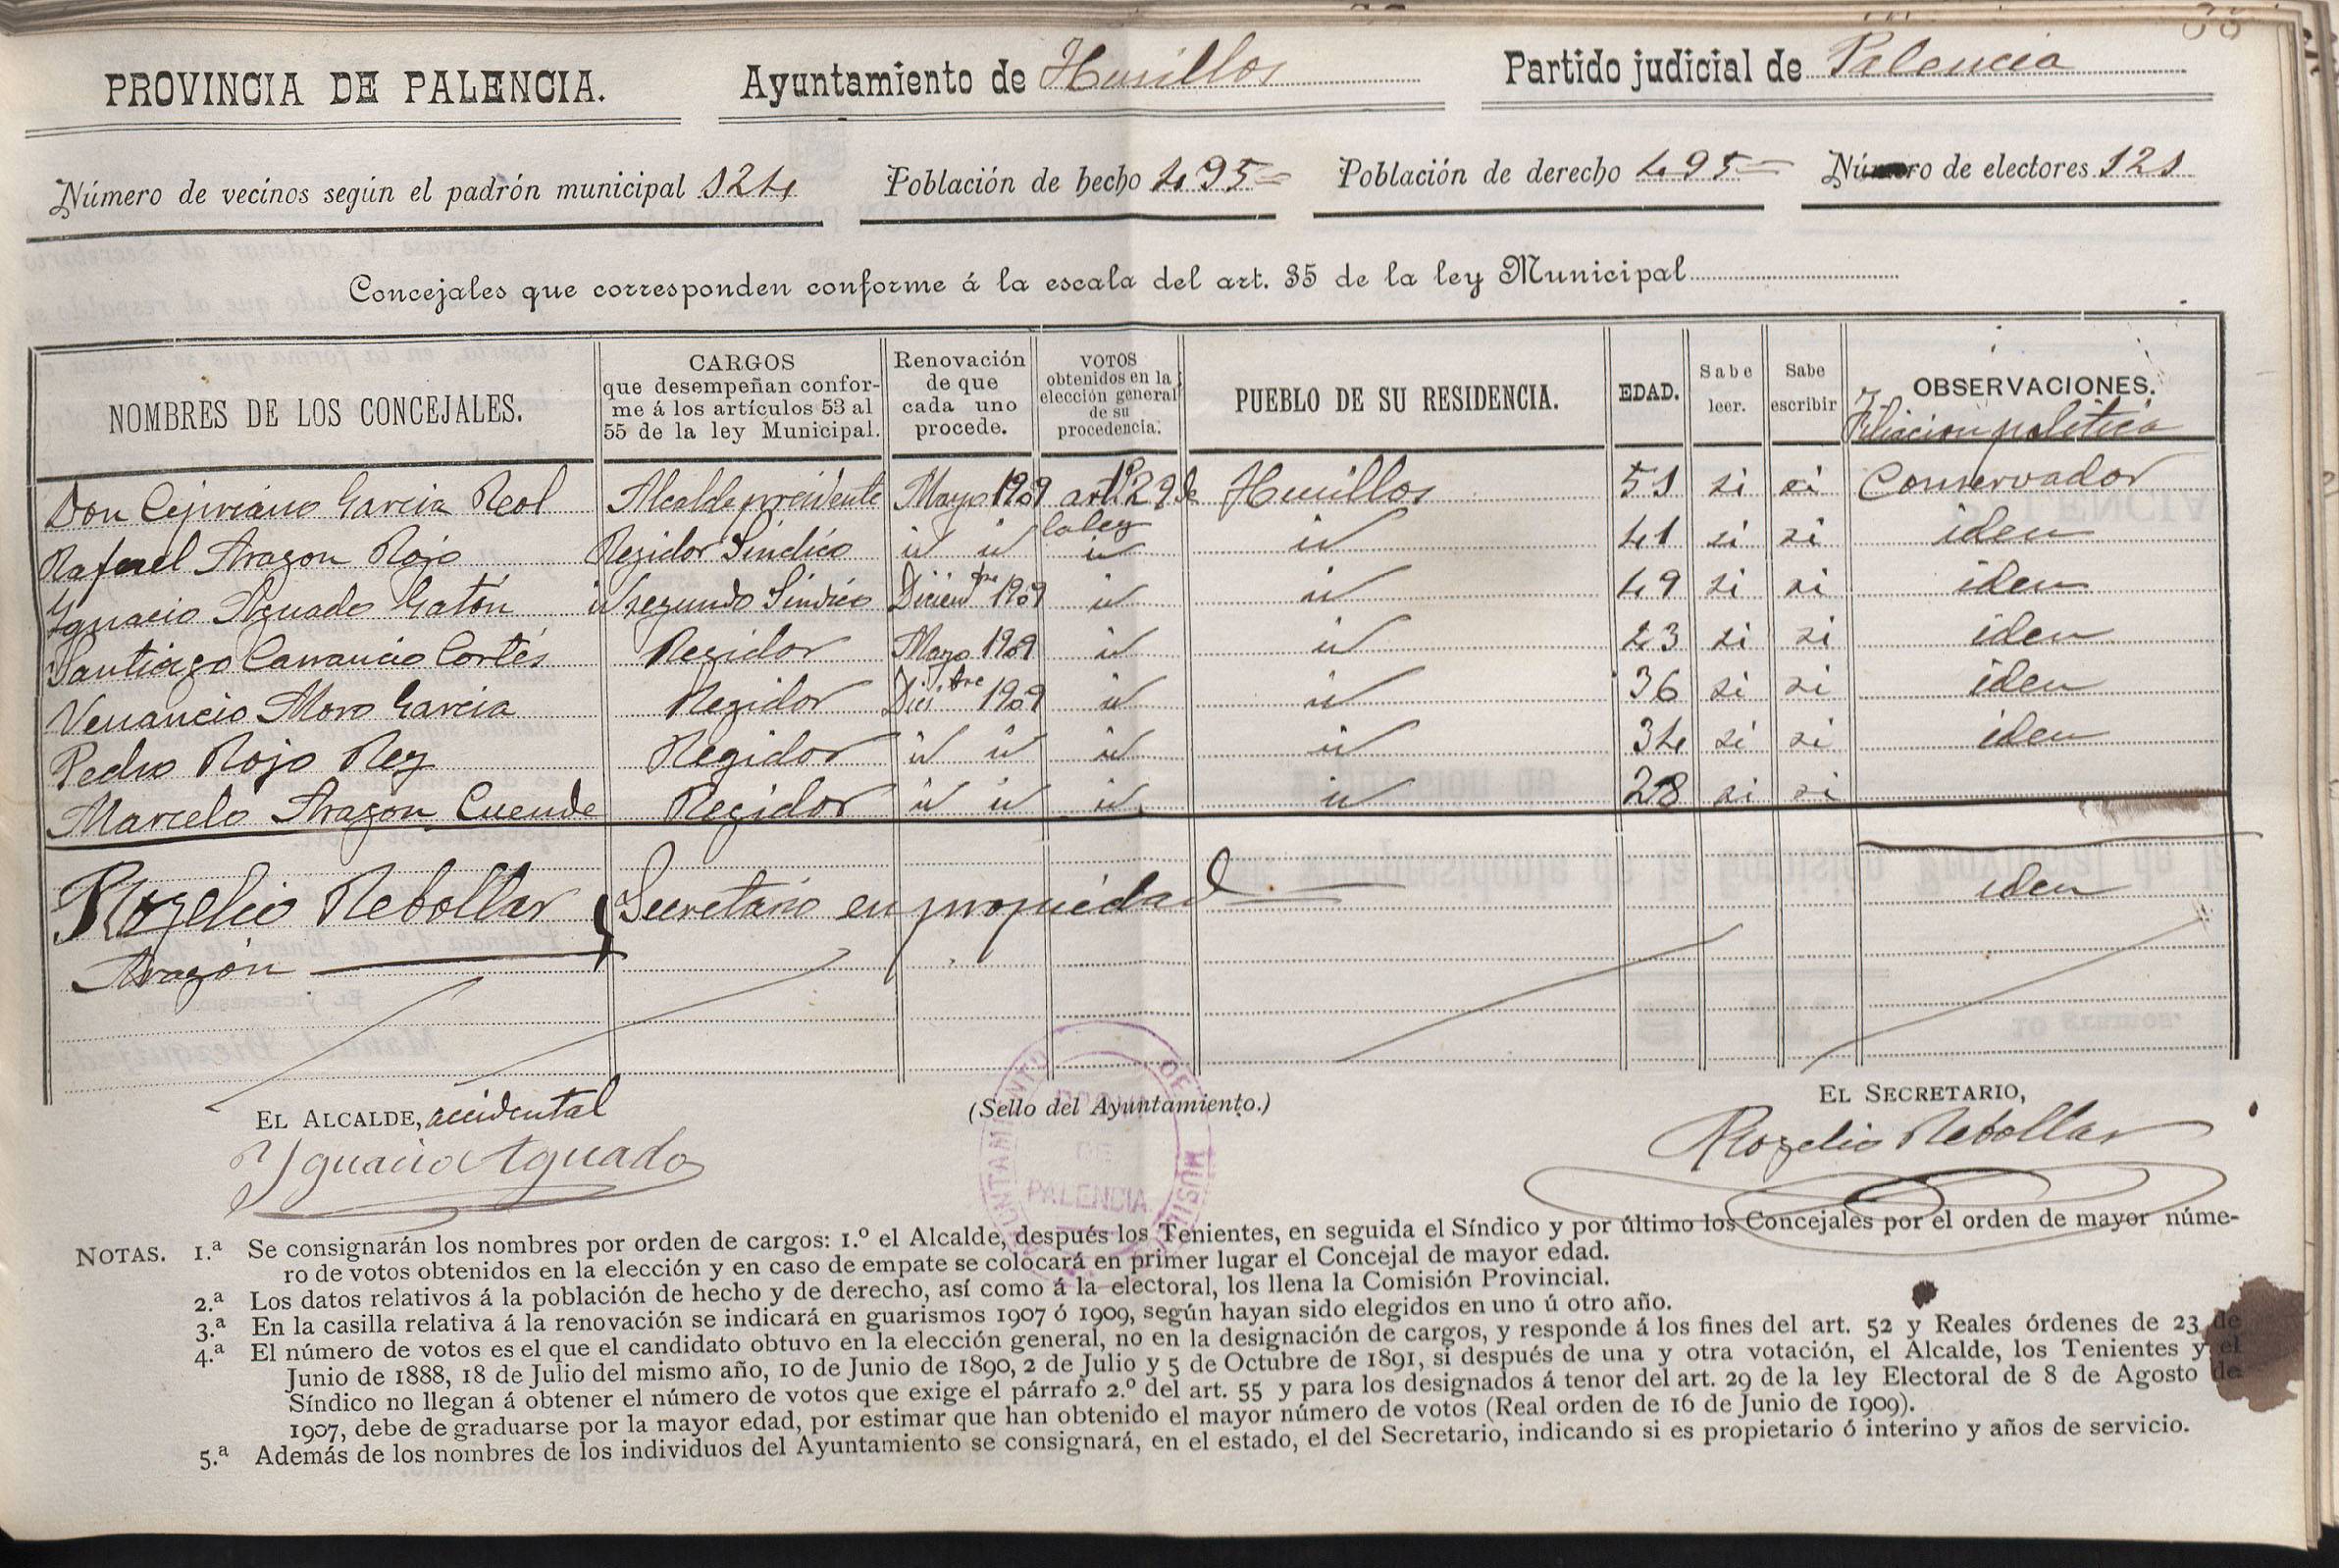 PROVINCIA DE PALENCIA. Ayuntamiento de Husillos Partido judicial de Palencia
Número de vecinos según el padrón municipal 124 Población de hecho 495 Población de derecho 495 Número de electores 121
Concejales que corresponden conforme á la escala del art. 35 de la ley Municipal
NOMBRES DE LOS CONCEJALES. CARGOS que desempeñan conforme á los artículos 53 al 55 de la ley Municipal. Renovación de que cada uno procede. VOTOS obtenidos en la elección general de su procedencia. PUEBLO DE SU RESIDENCIA. EDAD. Sabe leer. Sabe escribir OBSERVACIONES. Filiacion politica
Don Cipriano Garcia Reol Alcalde presidente Mayo 1909 artº 29 de la ley Husillos 51 si si Conservador
Rafael Aragon Rojo Regidor Sindico id id id id 41 si si iden
Ignacio Aguado Gatón id segundo Sindico Diciembre 1909 id id 49 si si iden
Santiago Carrancio Cortés Regidor Mayo 1909 id id 43 si si iden
Venancio Moro Garcia Regidor Dicibre 1909 id id 36 si si iden
Pedro Rojo Rey Regidor id id id id 34 si si iden
Marcelo Aragon Cuende Regidor id id id id 28 si si
Rogelio Rebollar Secretario en propiedad iden
Aragón
EL ALCALDE, accidental (Sello del Ayuntamiento.) EL SECRETARIO,
Ygnacio Aguado Rogelio Rebollar
AYUNTAMIENTO DE HUSILLOS
DE
PALENCIA
NOTAS. 1.ª Se consignarán los nombres por orden de cargos: 1.º el Alcalde, después los Tenientes, en seguida el Síndico y por último los Concejales por el orden de mayor núme-
ro de votos obtenidos en la elección y en caso de empate se colocará en primer lugar el Concejal de mayor edad.
2.ª Los datos relativos á la población de hecho y de derecho, así como á la electoral, los llena la Comisión Provincial.
3.ª En la casilla relativa á la renovación se indicará en guarismos 1907 ó 1909, según hayan sido elegidos en uno ú otro año.
4.ª El número de votos es el que el candidato obtuvo en la elección general, no en la designación de cargos, y responde á los fines del art. 52 y Reales órdenes de 23 de
Junio de 1888, 18 de Julio del mismo año, 10 de Junio de 1890, 2 de Julio y 5 de Octubre de 1891, si después de una y otra votación, el Alcalde, los Tenientes y el
Síndico no llegan á obtener el número de votos que exige el párrafo 2.º del art. 55 y para los designados á tenor del art. 29 de la ley Electoral de 8 de Agosto de
1907, debe de graduarse por la mayor edad, por estimar que han obtenido el mayor número de votos (Real orden de 16 de Junio de 1909).
5.ª Además de los nombres de los individuos del Ayuntamiento se consignará, en el estado, el del Secretario, indicando si es propietario ó interino y años de servicio.